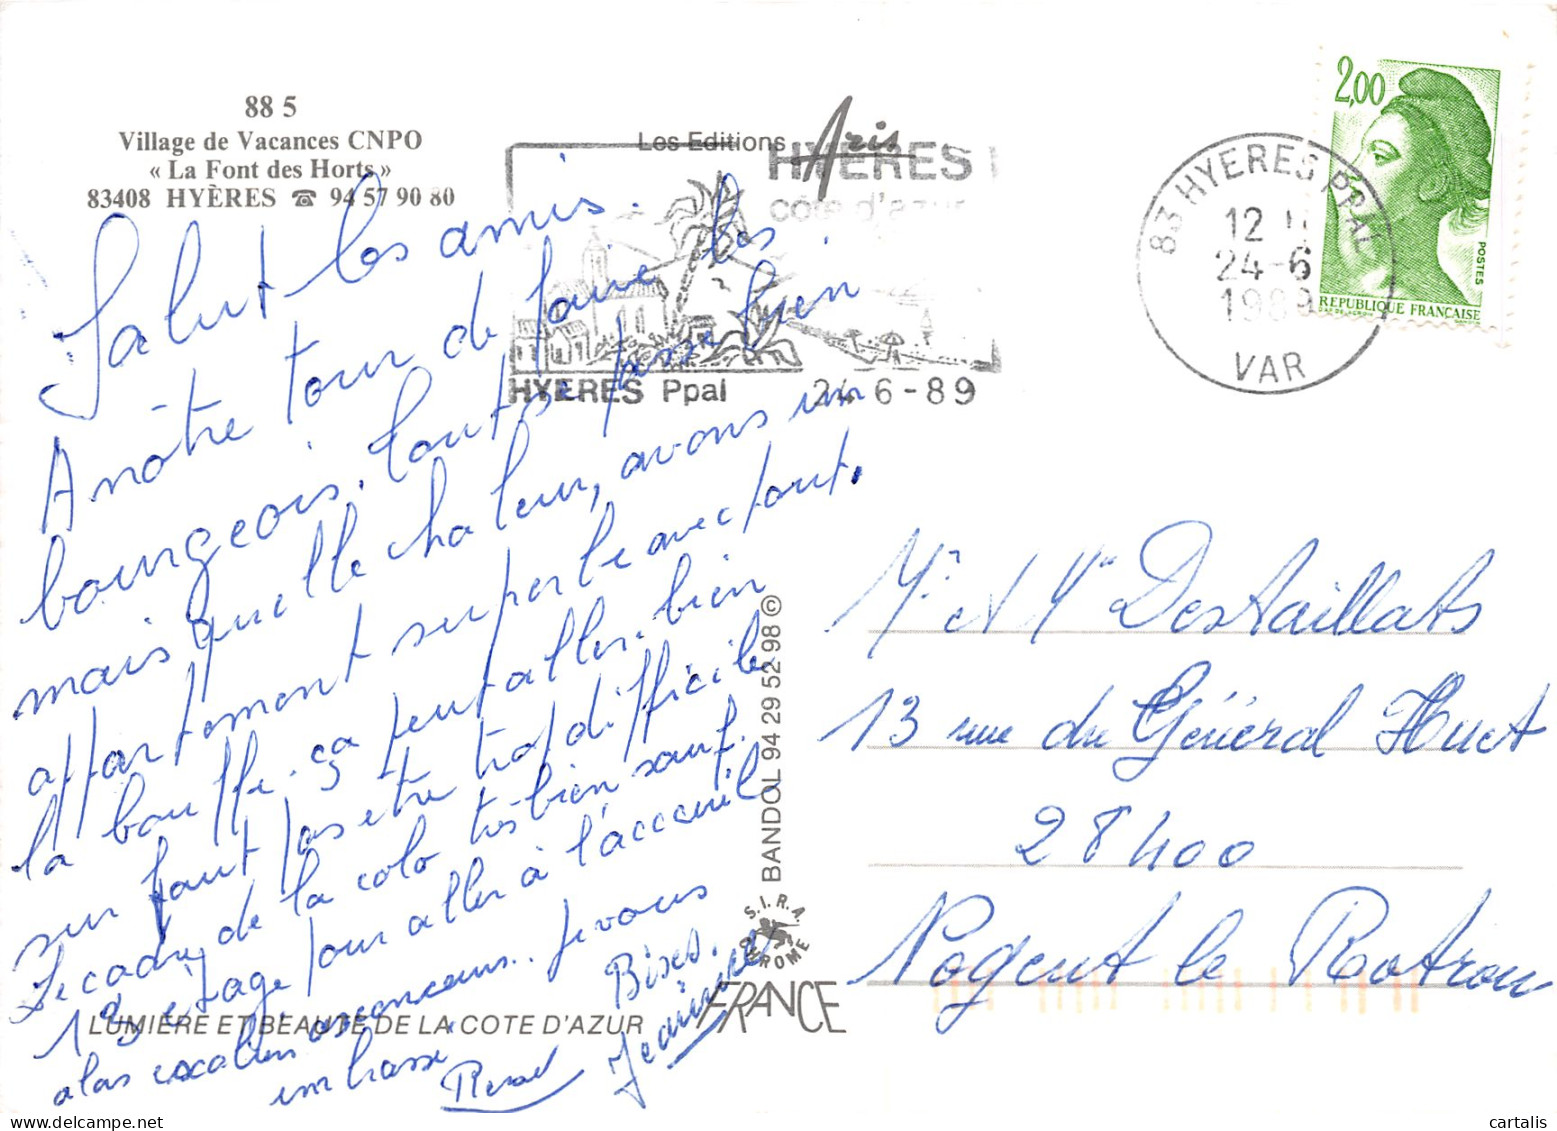 88 5
Village de Vacances CNPO
« La Font des Horts »
83408 HYÈRES ☎ 94 57 90 80
Les Editions Aris
HYERES
cote d'azur
HYERES Ppal 24-6-89
83 HYERES PPAL
12 H
24-6
1989
VAR
2,00
POSTES
REPUBLIQUE FRANCAISE
Salut les amis.
A nôtre tour de faire les
bourgeois. Tout se passe bien
mais quelle chaleur, avons un
appartement superbe avec tout.
la bouffe. ça peut aller. bien
sur faut pas etre trop difficile
le cadre de la colo très bien sauf.
1 étage pour aller à l'acceuil
alas ascenceurs. Je vous
embrasse
Bises.
Jeanine
Mr et Me Destaillats
13 rue du Général Huet
28400
Nogent le Rotrou
S.I.R.A. BANDOL 94 29 52 98 ©
LUMIÈRE ET BEAUTÉ DE LA COTE D'AZUR
FRANCE
cartalis